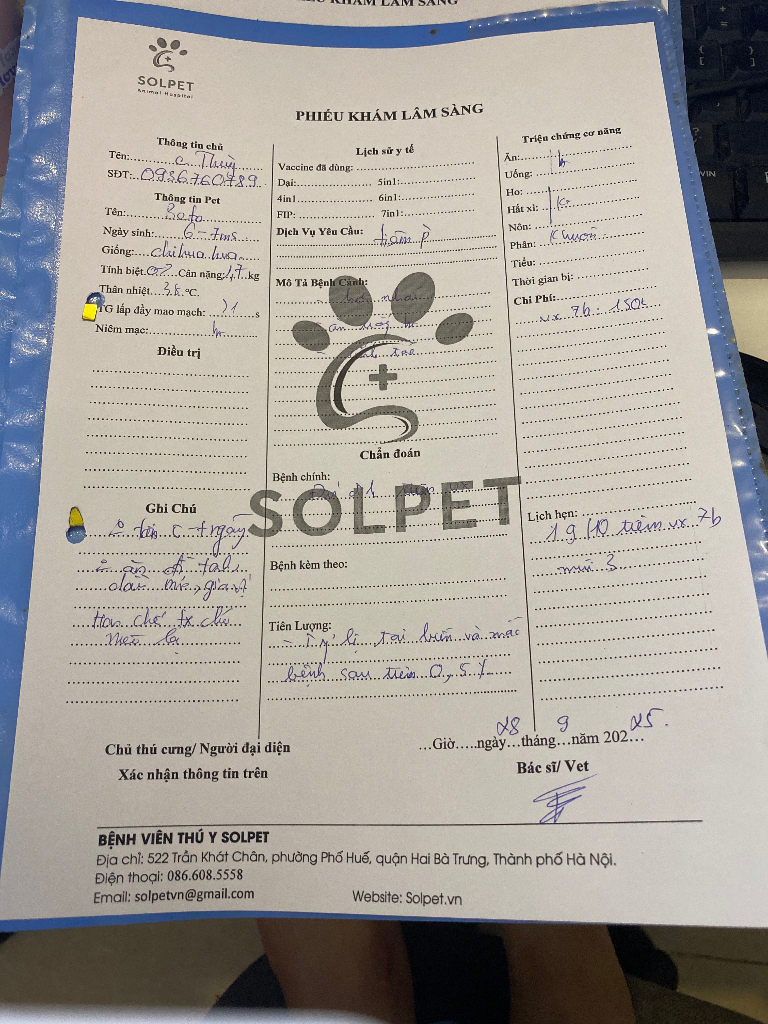 SOLPET
Animal Hospital
PHIẾU KHÁM LÂM SÀNG
Thông tin chủ
Tên: C Thuỳ
SĐT: 0936760789
Thông tin Pet
Tên:
Ngày sinh: 6-7ms
Giống: chihuahua
Tính biệt Cân nặng: 1,7 kg
Thân nhiệt 38 °C.
TG lấp đầy mao mạch: >1 s
Niêm mạc: h
Điều trị
Ghi Chú
ăn
Hạn chế tx chó
mèo lạ
Lịch sử y tế
Vaccine đã dùng:
Dại: 5in1:
4in1 6in1:
FIP: 7in1:
Dịch Vụ Yêu Cầu:
Mô Tả Bệnh Cảnh:
Chẩn đoán
Bệnh chính:
SOLPET
Bệnh kèm theo:
Tiên Lượng:
- Tỷ lệ tai biến và mắc
bệnh sau tiêm 0,5%
Triệu chứng cơ năng
Ăn:
Uống:
Ho:
Hắt xì:
Nôn:
Phân: khuôn
Tiểu:
Thời gian bị:
Chi Phí:
vx 7b: 150k
Lịch hẹn:
19/10 tiêm vx 7b
mũi 3
Chủ thú cưng/ Người đại diện
Xác nhận thông tin trên
...Giờ.....ngày 28 tháng 9 năm 202 25.
Bác sĩ/ Vet
BỆNH VIÊN THÚ Y SOLPET
Địa chỉ: 522 Trần Khát Chân, phường Phố Huế, quận Hai Bà Trưng, Thành phố Hà Nội.
Điện thoại: 086.608.5558
Email: solpetvn@gmail.com Website: Solpet.vn